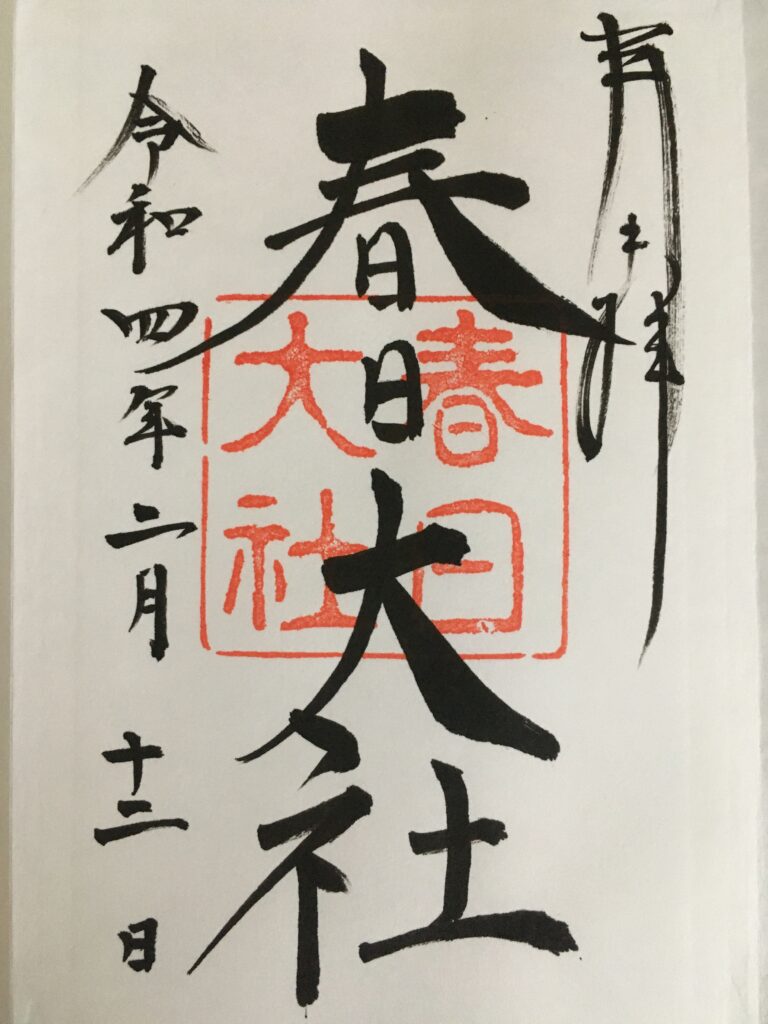 奉拝
春日大社
春日
大社
令和四年二月十二日